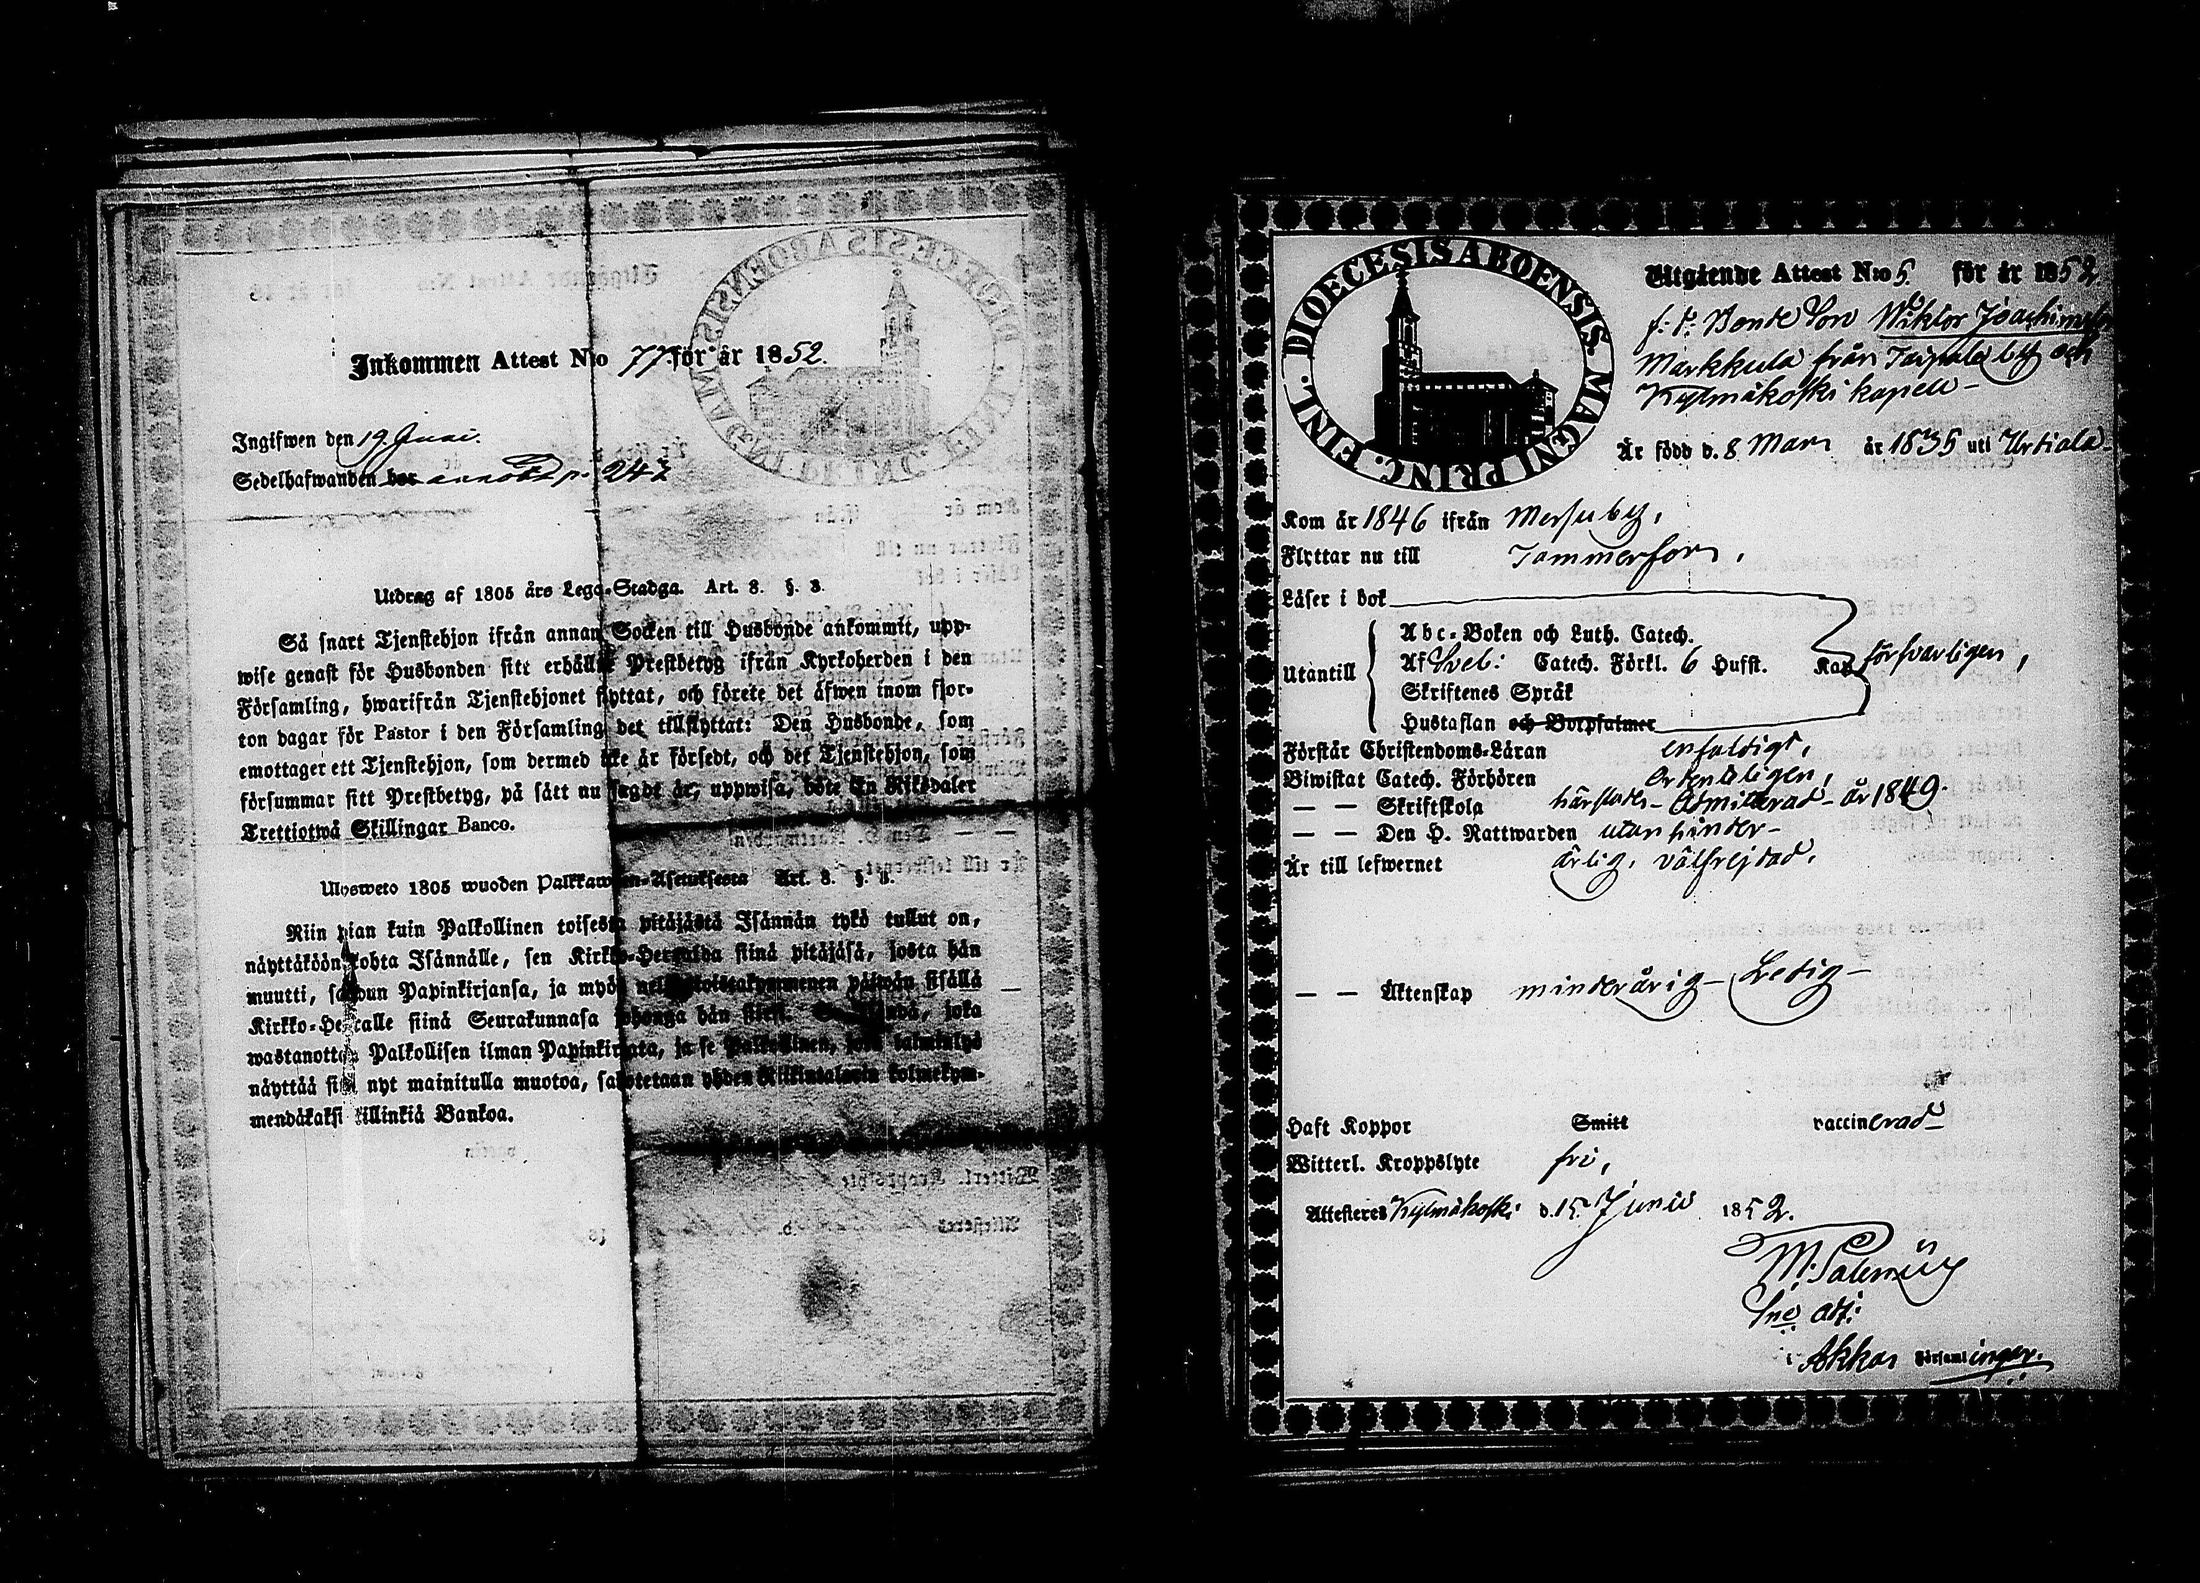 Inkommen Attest N:o 77. för år 1852.
Ingifwen den 19. Juni.
Sedelhafwanden bor annot p. 247
Utdrag af 1805 års Lego-Stadga. Art. 3. §. 3.
Så snart Tjenstehjon ifrån annan Socken till Husbonde ankommit, upp-
wise genast för Husbonden sitt erhållne Prestbetyg ifrån Kyrkoherden i den
Församling, hwarifrån Tjenstehjonet flyttat, och förete det äfwen inom fjor-
ton dagar för Pastor i den Församling det tillflyttat: Den Husbonde, som
emottager ett Tjenstehjon, som dermed icke är försedt, och det Tjenstehjon, som
försummar sitt Prestbetyg, på sätt nu sagdt är, uppwisa, böte En Riksdaler
Trettiotwå Skillingar Banco.
Ulosweto 1805 wuoden Palkkawäen-Asetuksesta Art. 3. §. 3.
Niin pian kuin Palkollinen toisesta pitäjästä Isännän tykö tullut on,
näyttäköön kohta Isännälle, sen Kirkko-Herralda siinä pitäjäsä, josta hän
muutti, saadun Papinkirjansa, ja myös neljäntoistakymmenen päiwän sisällä
Kirkko-Herralle siinä Seurakunnasa johonga hän siirsi. Se Isändä, joka
wastanottaa Palkollisen ilman Papinkirjata, ja se Palkollinen, joka laiminlyö
näyttää sitä nyt mainitulla muotoa, sakotetaan yhden Riikintalarin kolmekym-
mendäkaksi killinkiä Bankoa.
DIOECESIS ABOENSIS. MAGNI PRINC. FINL.
Utgående Attest N:o 5. för år 1852
f. d. Bonde Son Wiktor Joachimsson
Markkula från Taipale by och
Kylmäkoski kapell -
Är född d. 8 Mars år 1835 uti Urdiala
Kom år 1846 ifrån Mersu by,
Flyttar nu till Tammerfors,
Läser i bok
Abc-Boken och Luth. Catech.
Utantill Af Sveb: Catech. Förkl. 6 Hufst. Kap försvarligen,
Skriftenes Språk
Hustaflan och Botpsalmer
Förstår Christendoms-Läran enfaldigt,
Biwistat Catech. Förhören Ordentligen,
— — Skriftskola härstädes - Admitterad - år 1849.
— — Den H. Nattwarden utan hinder -
Är till lefwernet ärlig, välfrejdad.
— — Äktenskap minderårig - Ledig -
Haft Koppor Smitt vaccinerad
Witterl. Kroppslyte fri,
Attesteres Kylmäkoski d. 15 Junii 1852.
i Akkas Församlingar.